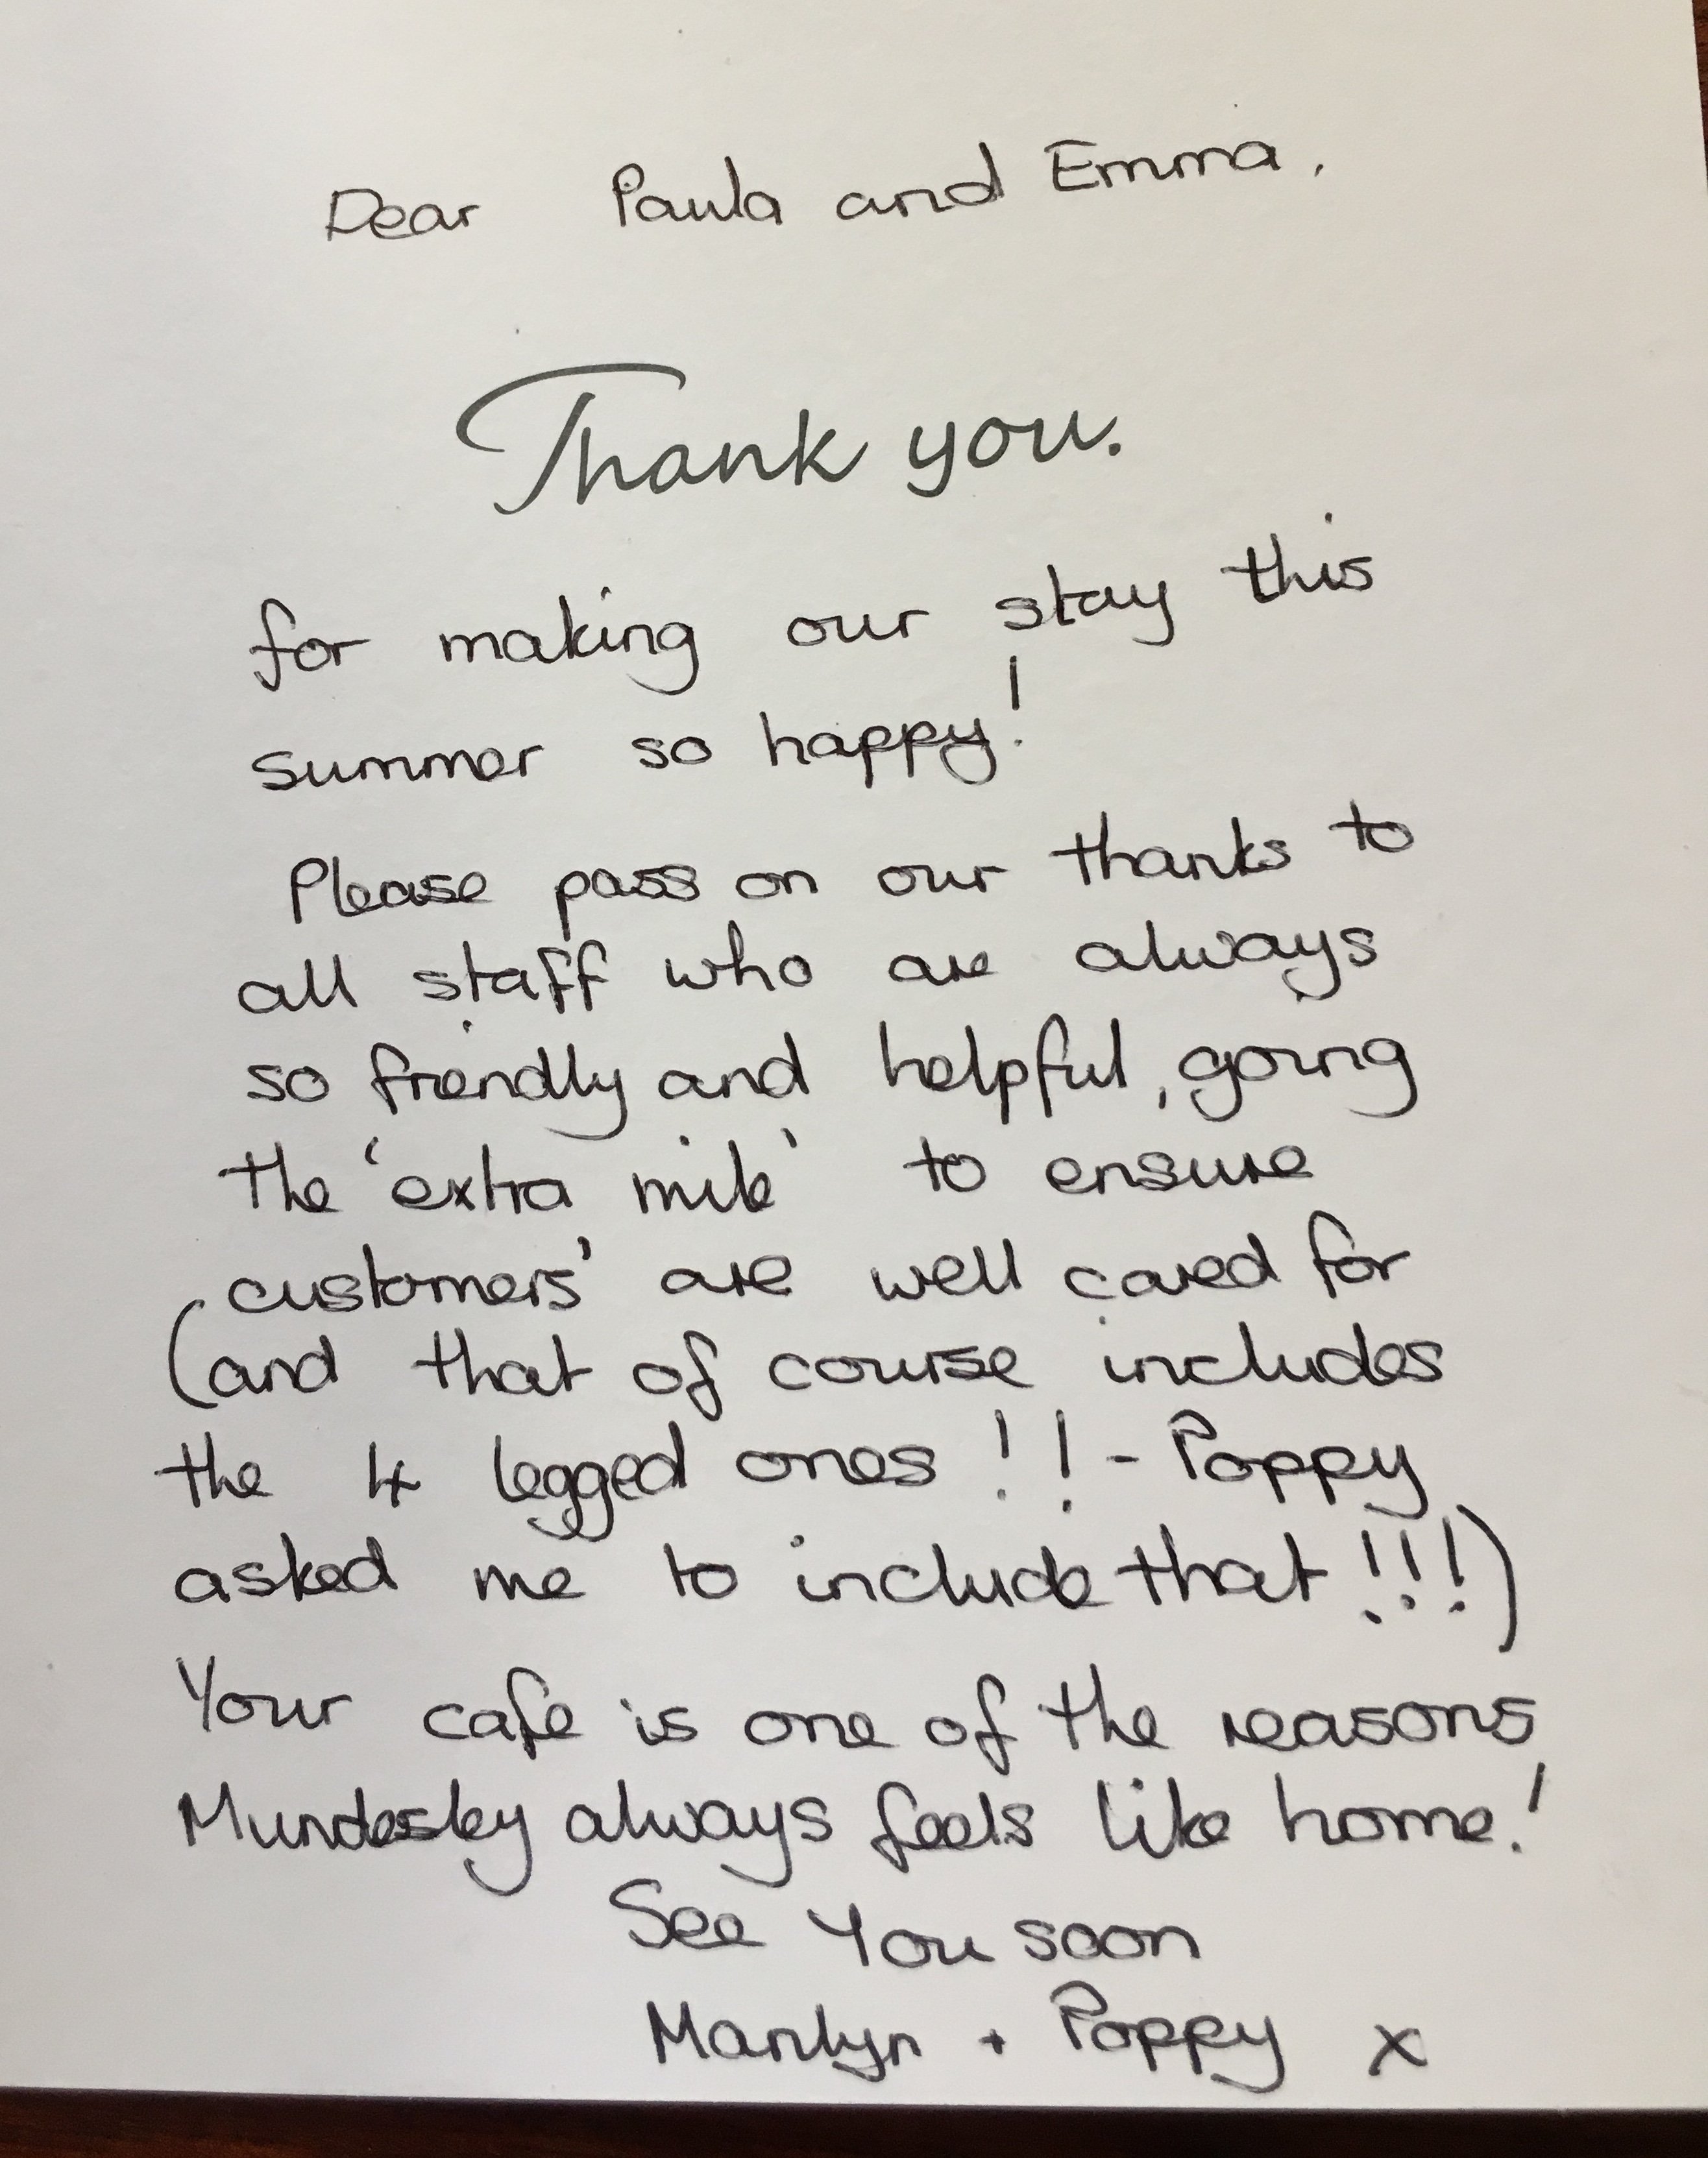 Dear Paula and Emma,
Thank you.
for making our stay this
summer so happy!
Please pass on our thanks to
all staff who are always
so friendly and helpful, going
the 'extra mile' to ensure
customers' are well cared for
(and that of course includes
the 4 legged ones !! - Poppy
asked me to include that !!!)
Your cafe is one of the reasons
Mundesley always feels like home!
See You soon
Marilyn + Poppy x